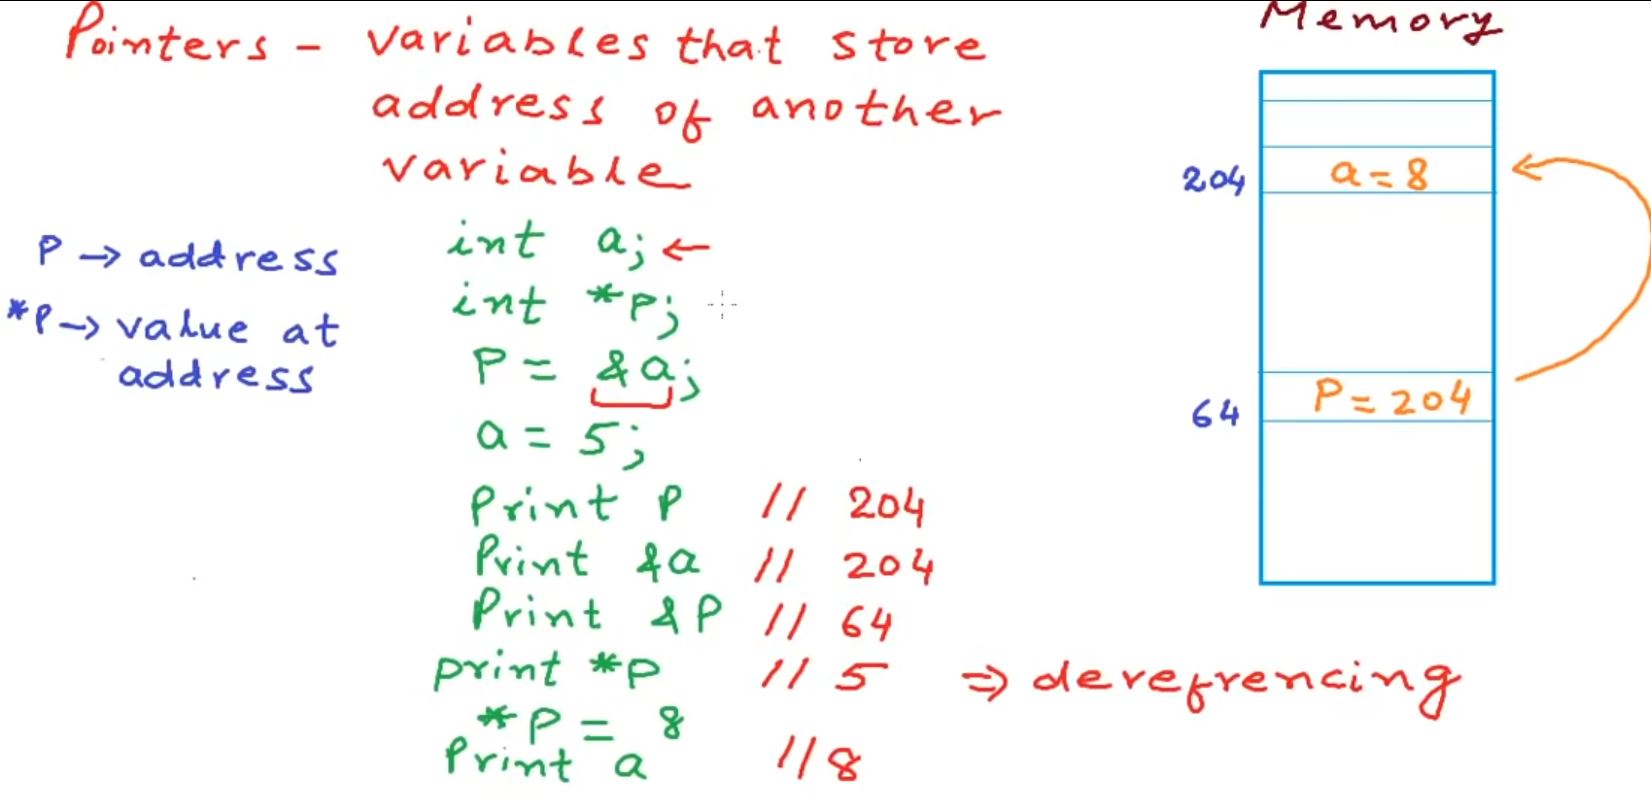 Pointers - variables that store
address of another
variable
P → address
*P → value at
address
int a; ←
int *P;
P = &a;
a = 5;
Print P // 204
Print &a // 204
Print &P // 64
print *p // 5 ⇒ derefrencing
*P = 8
Print a // 8
Memory
204 a = 8
64 P = 204